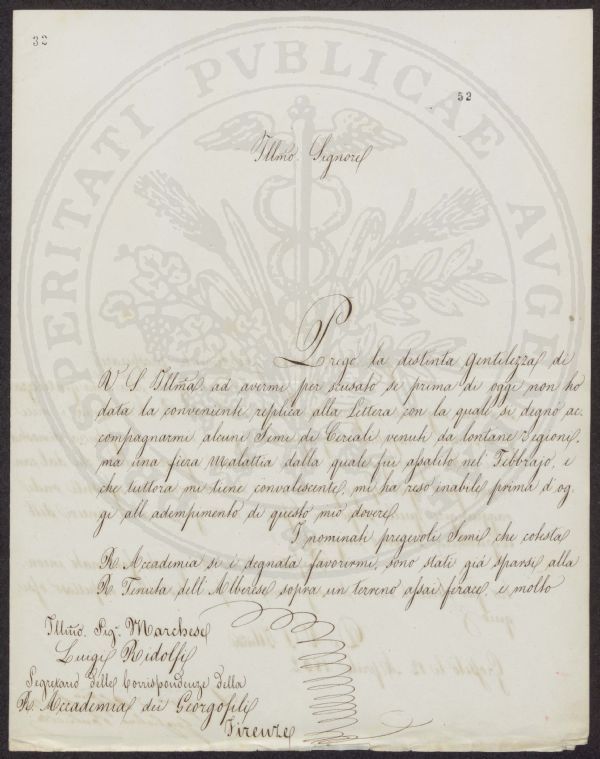 32
52
PROSPERITATI PVBLICAE AVGENDAE
Illmo. Signore
Prego la distinta Gentilezza di
V. S. Illma. ad avermi per scusato se prima di oggi non hò
data la conveniente replica alla Lettera con la quale si degnò ac=
compagnarmi alcuni Semi di Cereali venuti da lontane regioni,
ma una fiera Malattia dalla quale fui assalito nel Febbrajo, e
che tuttora mi tiene convalescente, mi ha reso inabile prima d'og=
gi all'adempimento di questo mio dovere.
I nominati pregevoli Semi che cotesta
R. Accademia si è degnata favorirmi, sono stati già sparsi alla
R. Tenuta dell'Alberese sopra un terreno assai ferace, e molto
Illmo. Sigr. Marchese
Luigi Ridolfi
Segretario delle Corrispondenze della
R. Accademia dei Georgofili
Firenze